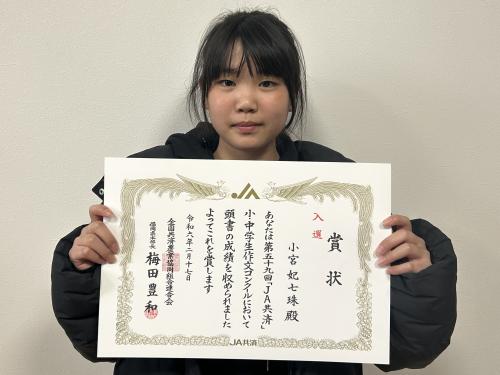 JA
賞状
入選
小宮妃七珠殿
あなたは第五十九回「JA共済」
小・中学生作文コンクールにおいて
頭書の成績を収められました
よってこれを賞します
令和六年二月十七日
全国共済農業協同組合連合会
福岡県本部長 梅田豊和
JA共済